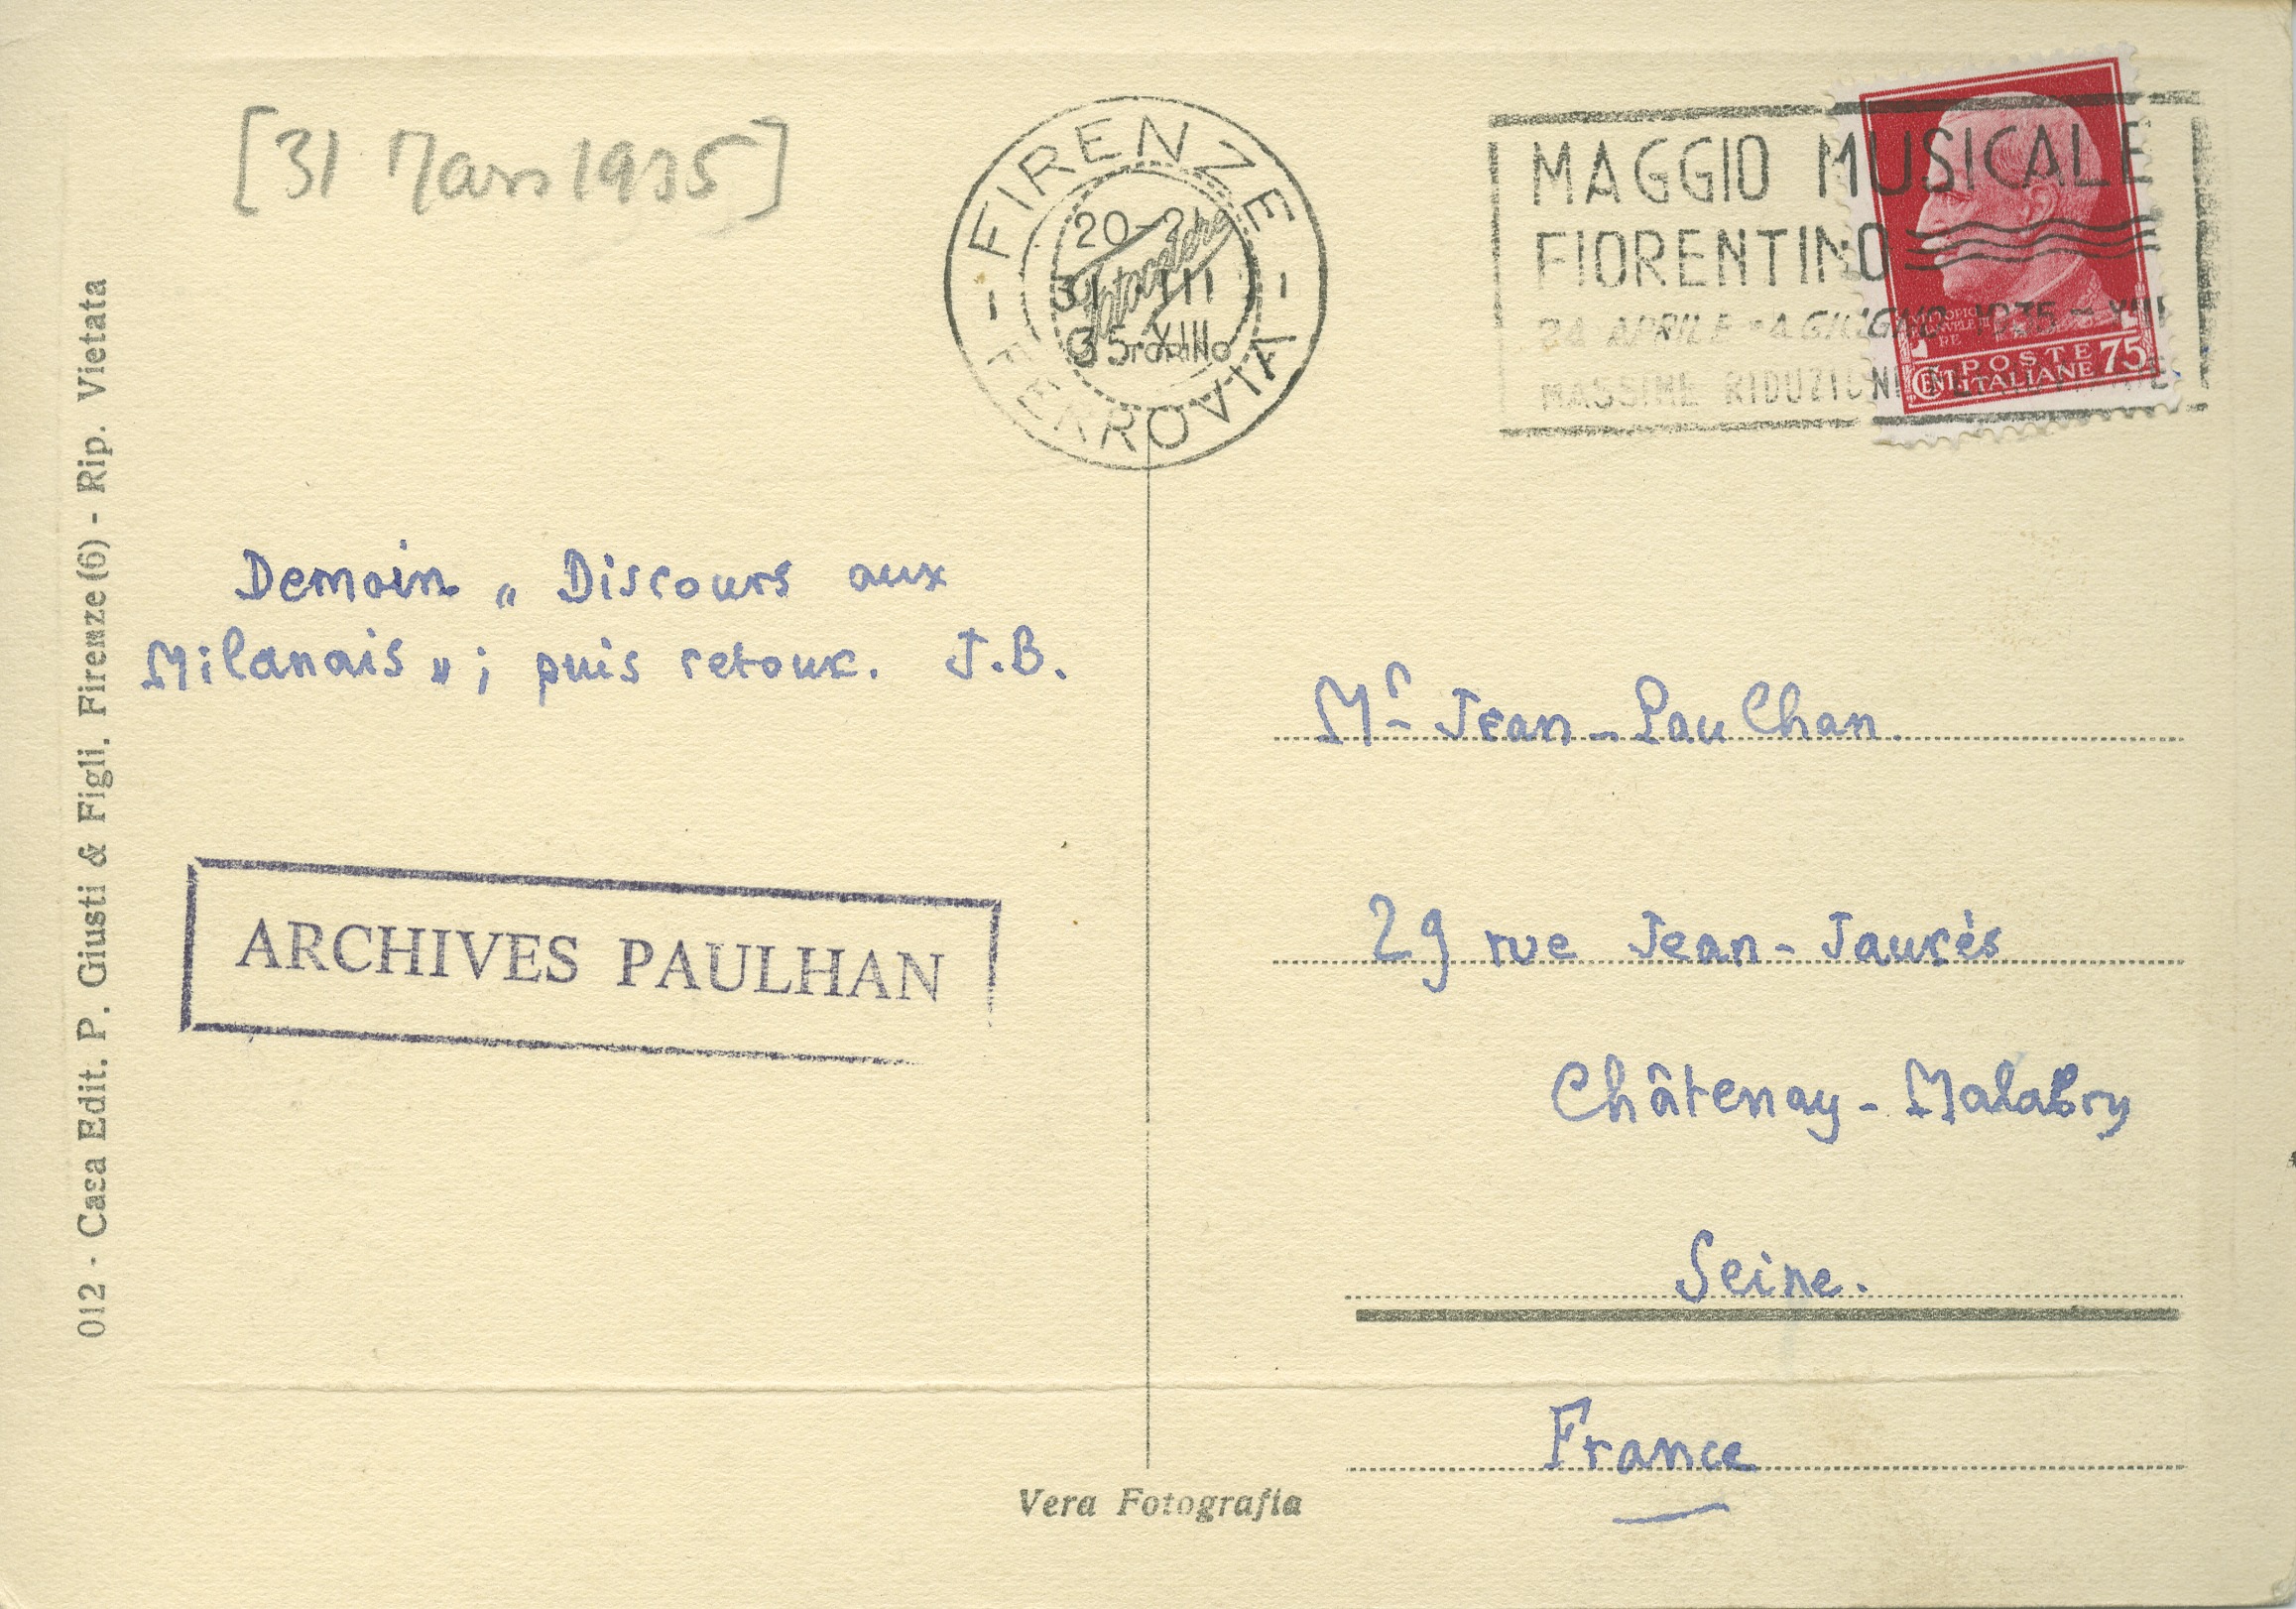 [31 Mars 1935]
FIRENZE
20-21
31 III
35 XIII
FERROVIA
TORINO
MAGGIO MUSICALE
FIORENTINO
24 APRILE - 4 GIUGNO 1935 - XIII
MASSIME RIDUZIONI
POSTE
ITALIANE
CENT. 75
Demain „ Discours aux
Milanais „ ; puis retour. J.B.
ARCHIVES PAULHAN
Mr Jean-Paulhan.
29 rue Jean-Jaurès
Châtenay-Malabry
Seine.
France
Vera Fotografia
012 - Casa Edit. P. Giusti & Figli. Firenze (6) - Rip. Vietata